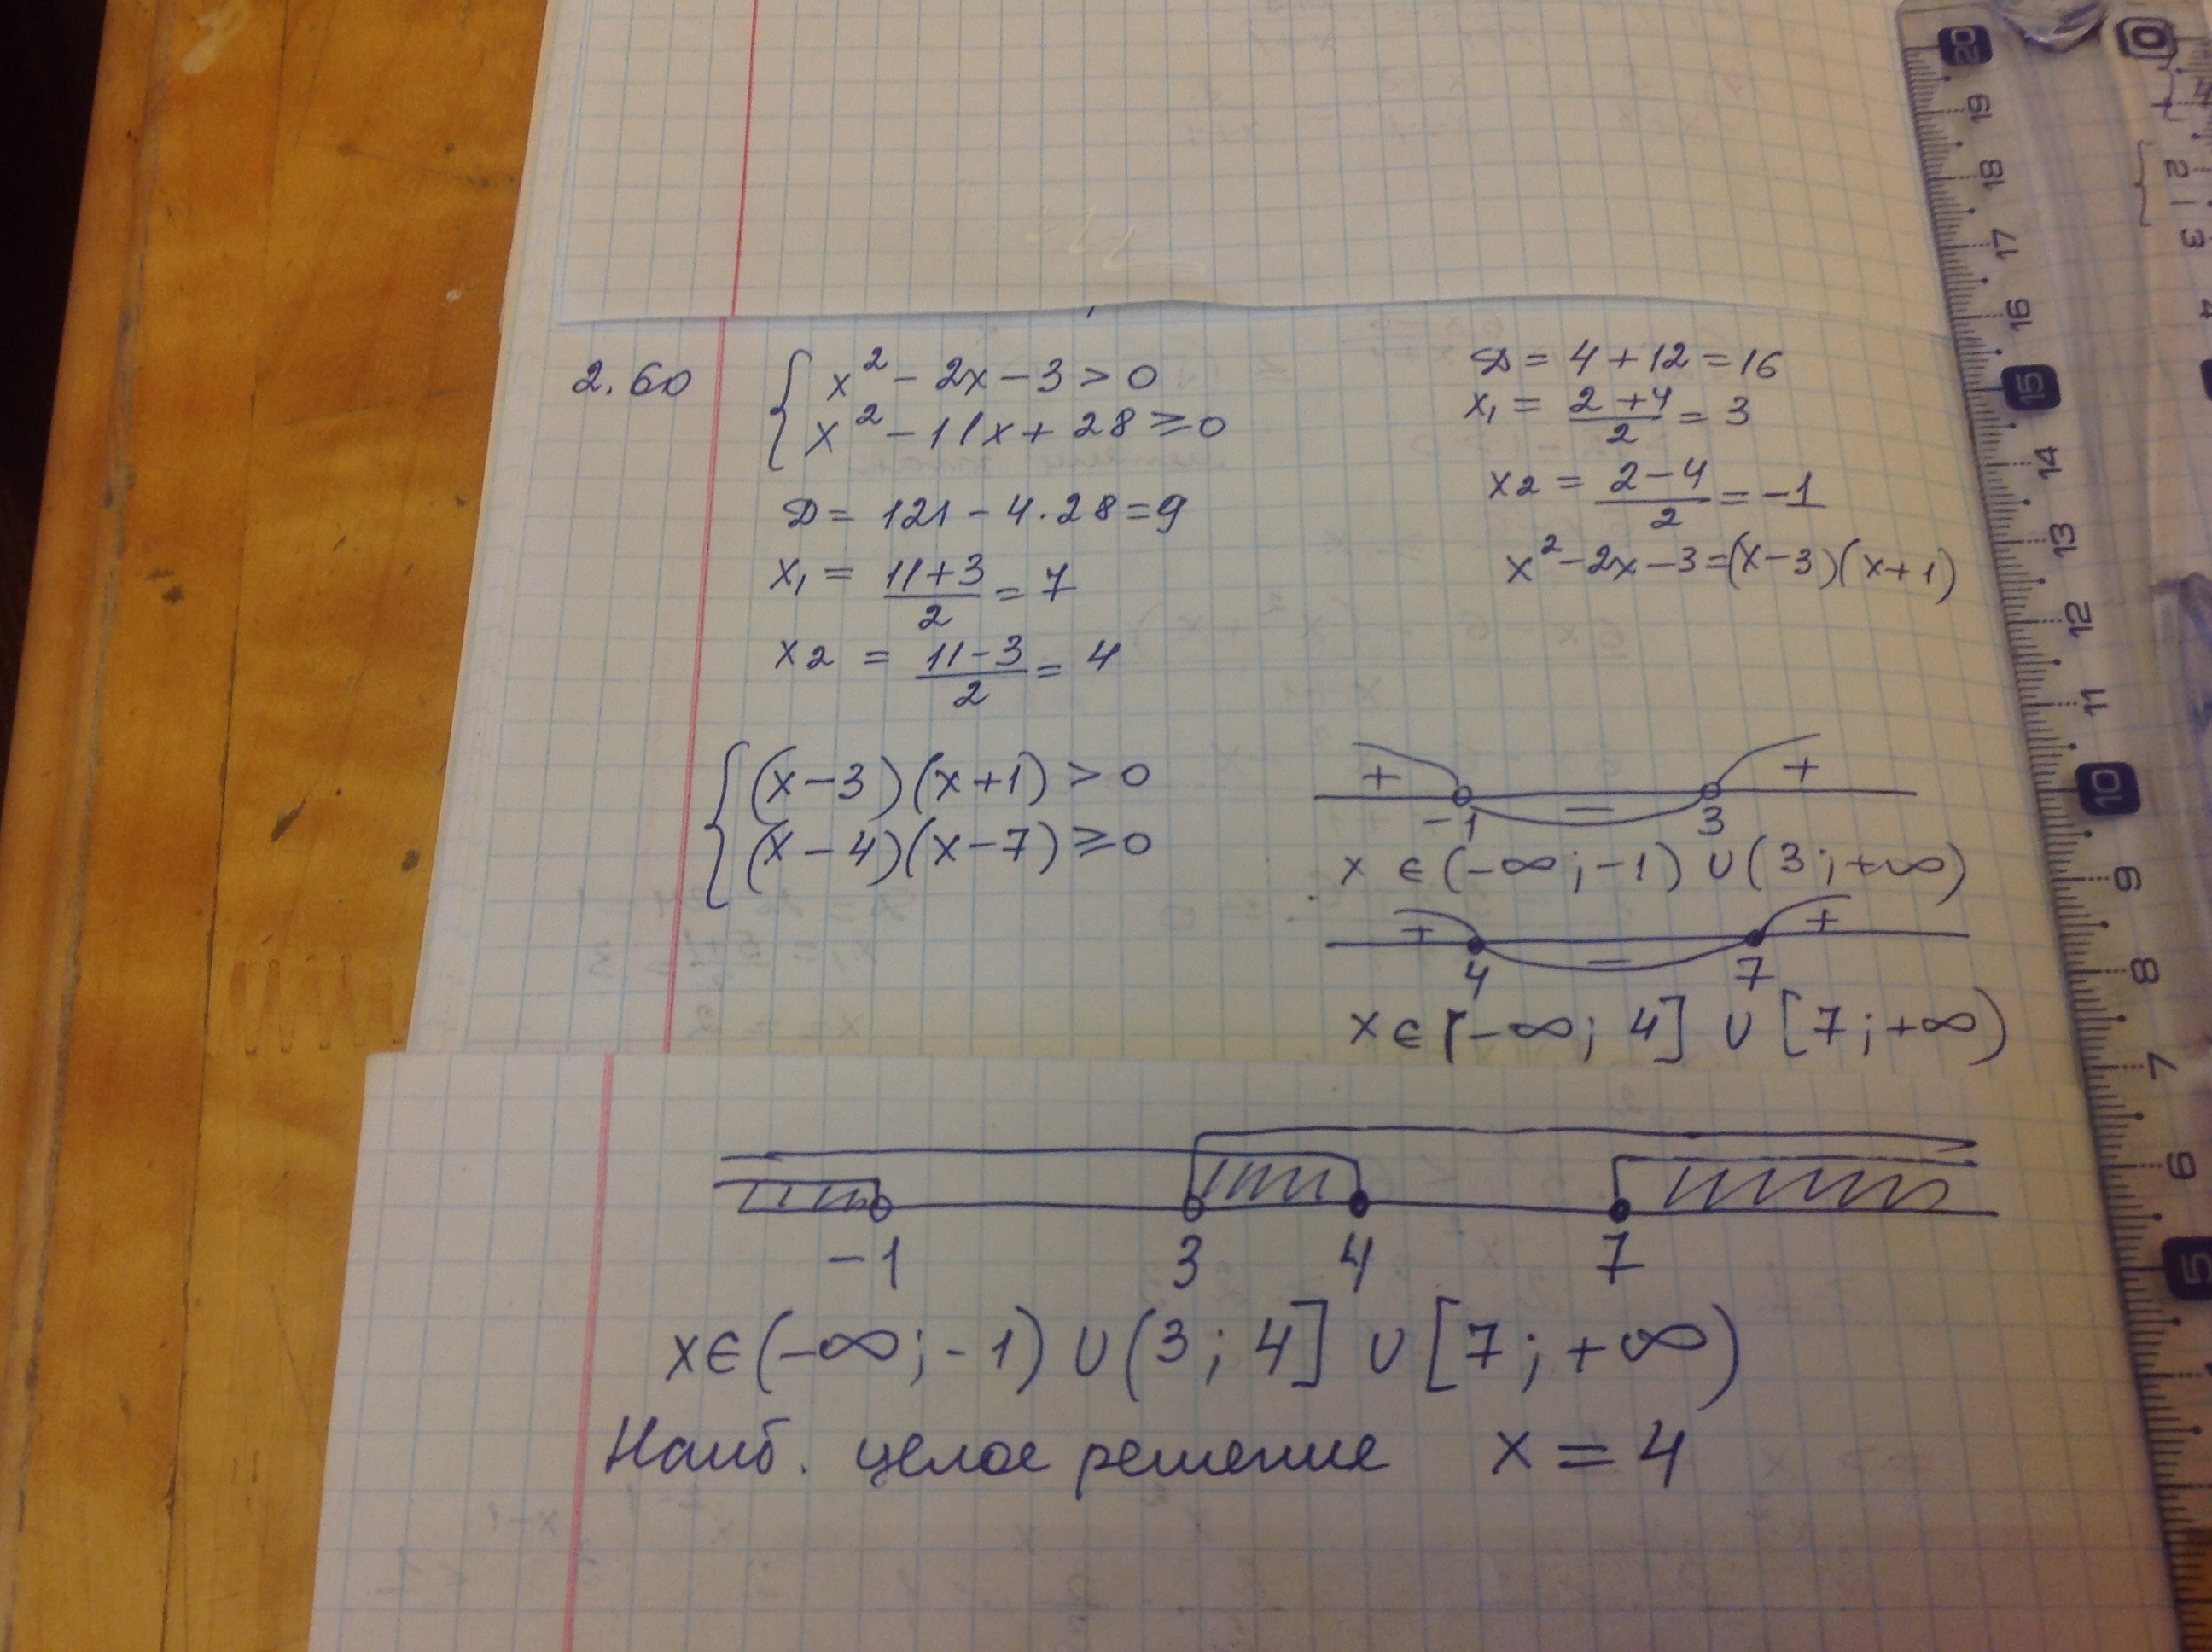 2.60
{ x² - 2x - 3 > 0
x² - 11x + 28 ≥ 0
D = 121 - 4·28 = 9
x₁ = (11+3)/2 = 7
x2 = (11-3)/2 = 4
D = 4 + 12 = 16
x₁ = (2+4)/2 = 3
x2 = (2-4)/2 = -1
x² - 2x - 3 = (x-3)(x+1)
{ (x-3)(x+1) > 0
(x-4)(x-7) ≥ 0
+ - +
-1 3
x ∈ (-∞; -1) ∪ (3; +∞)
+ - +
4 7
x ∈ [-∞; 4] ∪ [7; +∞)
-1 3 4 7
x ∈ (-∞; -1) ∪ (3; 4] ∪ [7; +∞)
Наиб. целое решение x = 4
20 19 18 17 16 15 14 13 12 11 10 9 8 7 6 5
0 1 2 3 4